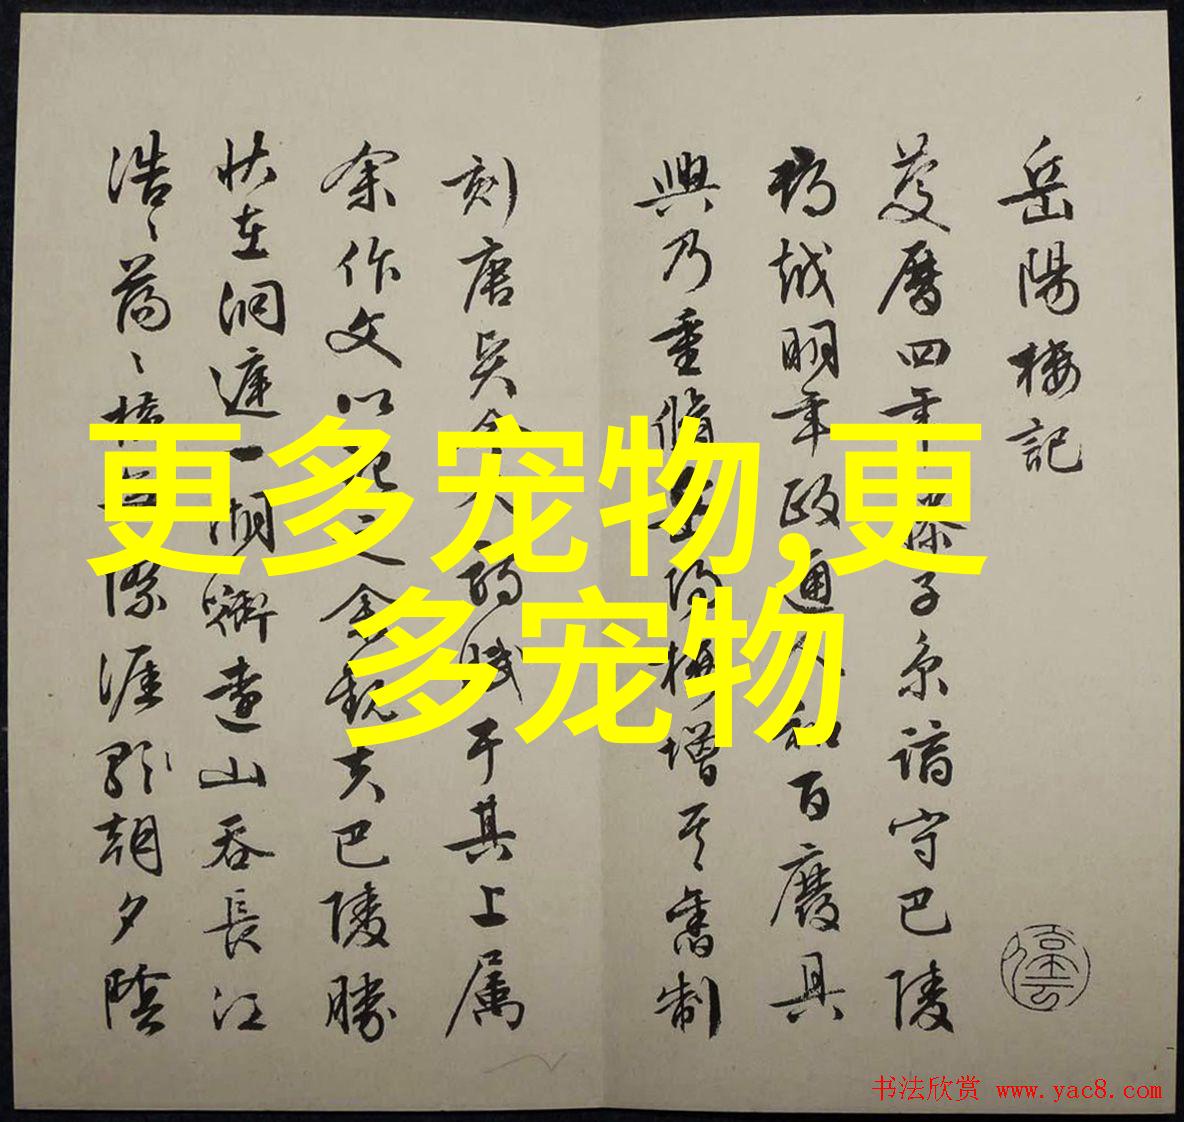 岳陽樓記
慶曆四年滕子京謫守巴陵
郡越明年政通人和百廢具
興乃重脩岳陽樓增其舊制
刻唐賢今人詩賦于其上属
余作文以記之余觀夫巴陵勝
狀在洞庭一湖銜遠山吞長江
浩〻蕩〻橫無際涯朝夕陰
更多宠物,更
多宠物
书法欣赏 www.yac8.com